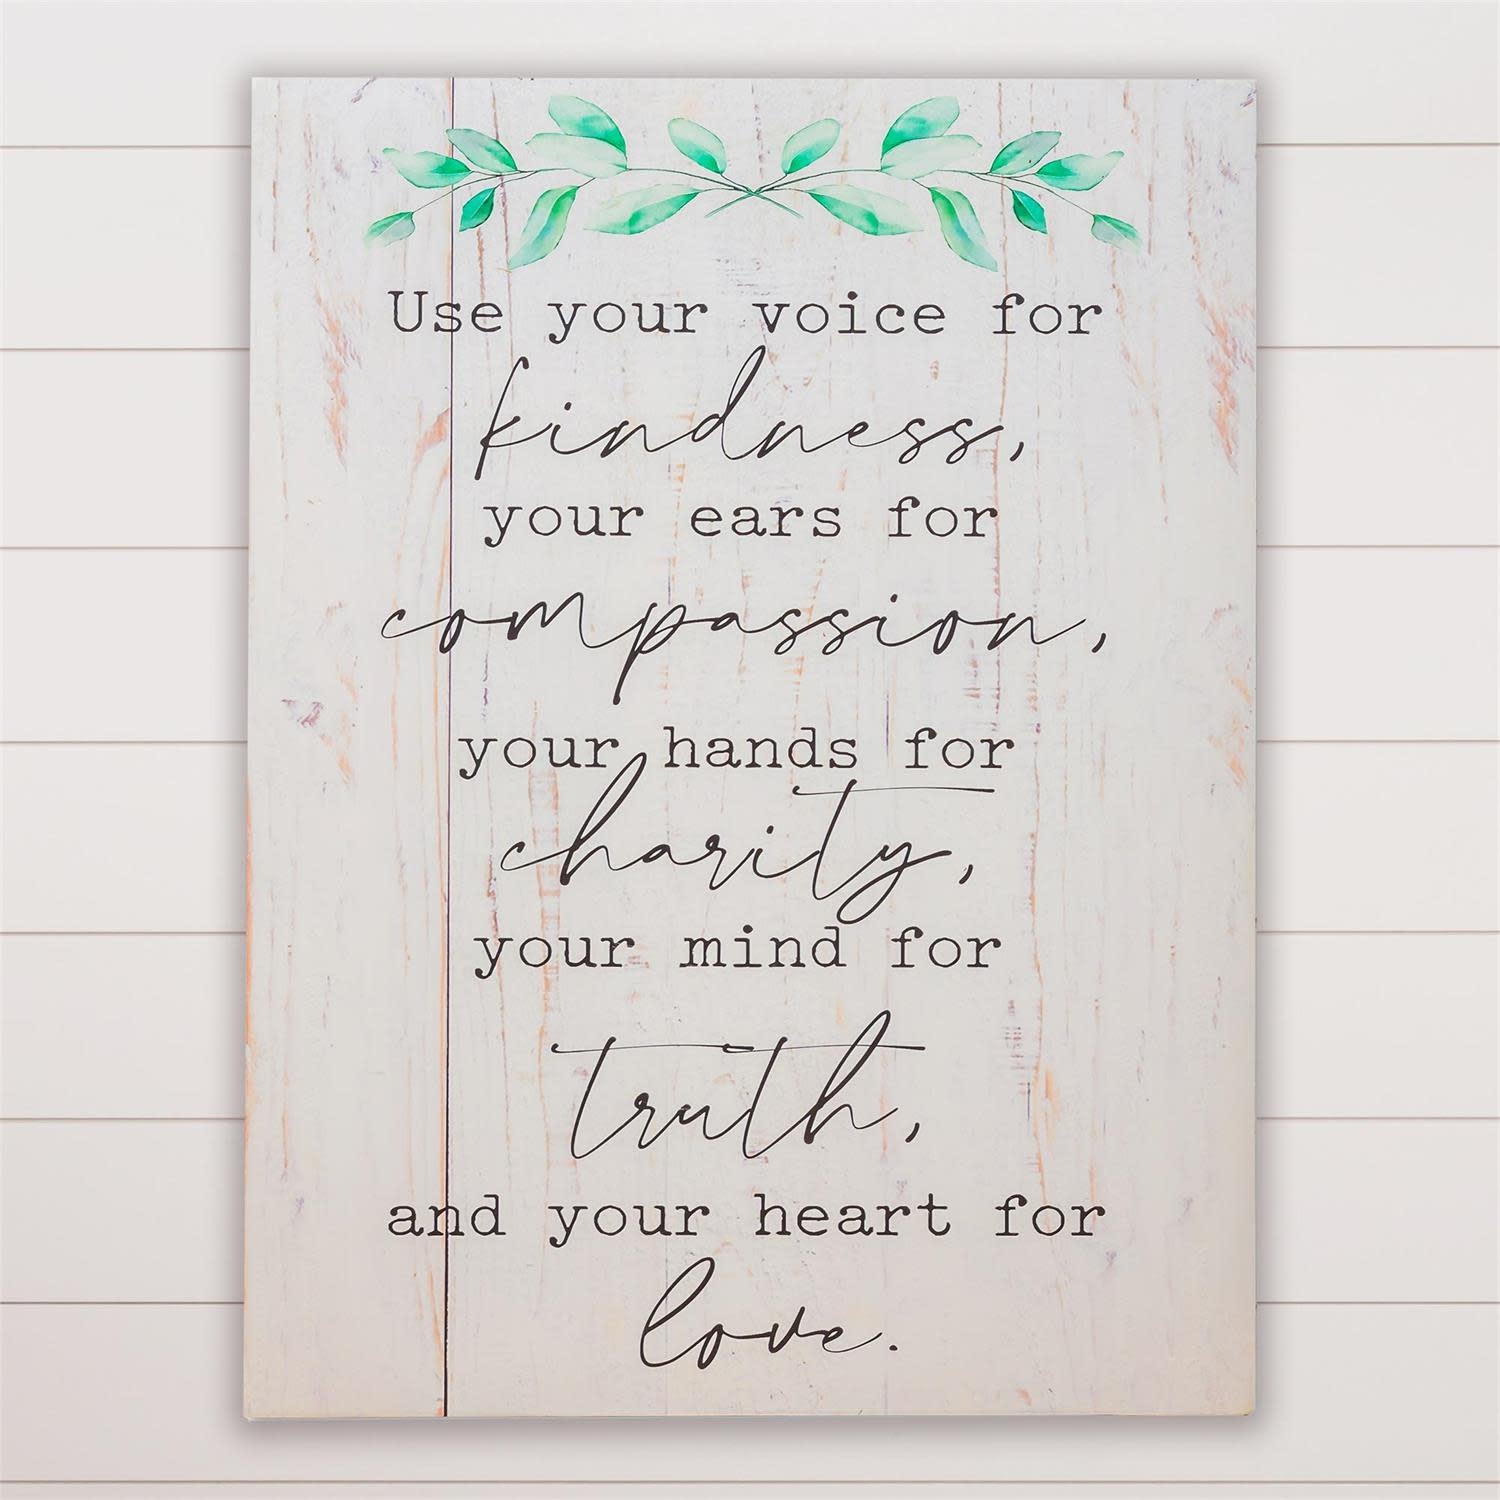 Use your voice for
kindness,
your ears for
compassion,
your hands for
charity,
your mind for
truth,
and your heart for
love.